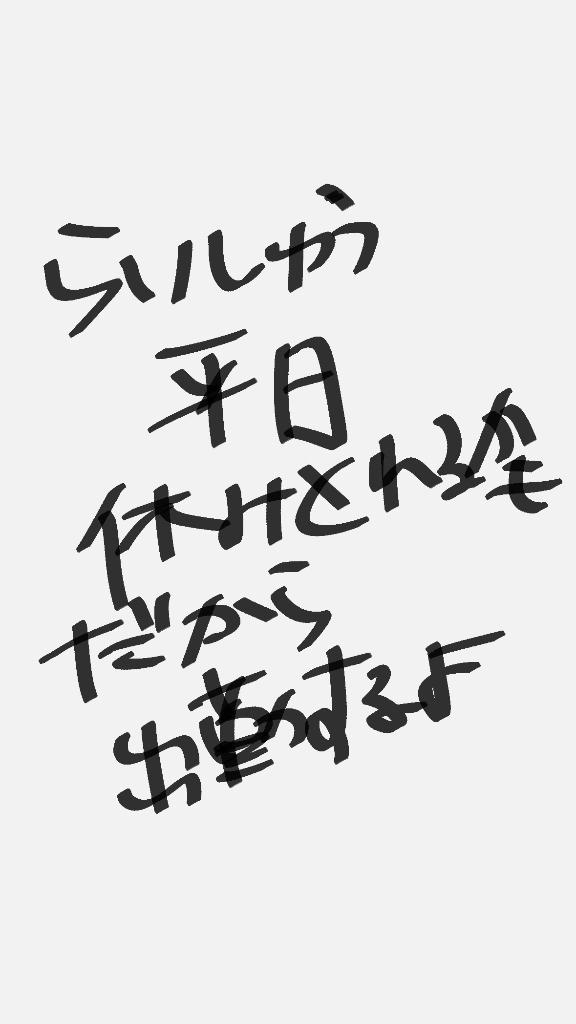 らいしゅう
平日
休みとれる笔
だから
出勤するよ